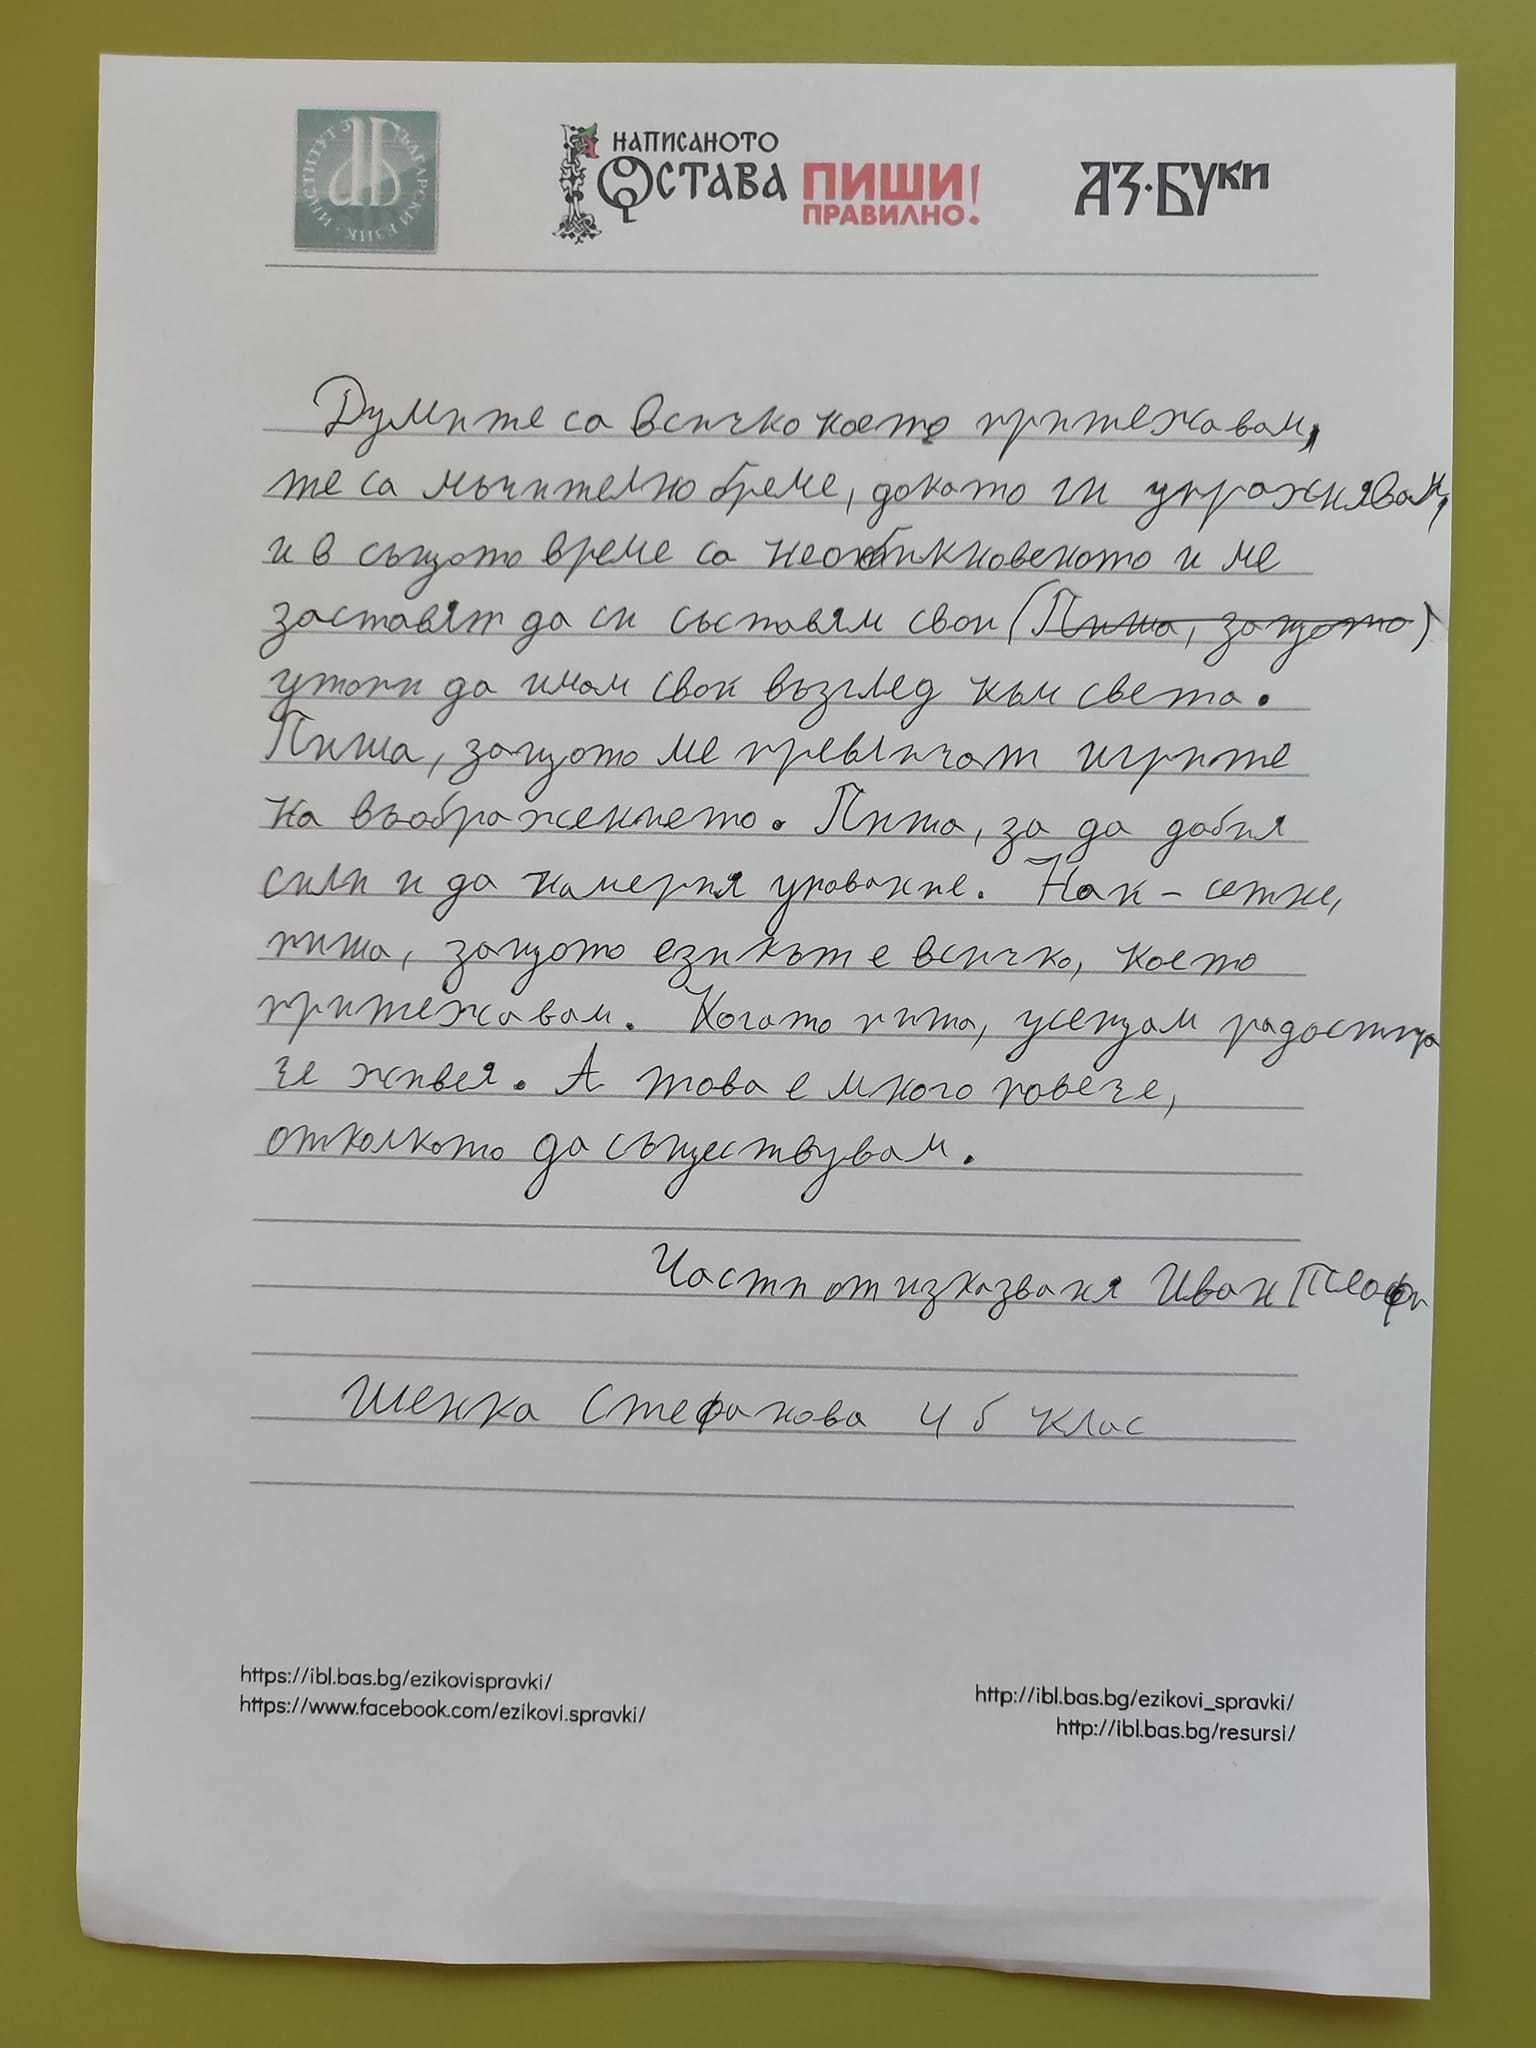 ИНСТИТУТ ЗА БЪЛГАРСКИ ЕЗИК
НАПИСАНОТО
ОСТАВА
ПИШИ
ПРАВИЛНО!
АЗ·БУКИ
Думите са всичко което притежавам,
те са мъчително бреме, докато ги упражнявам,
и в същото време са необикновеното и ме
заставят да си съставям свои (Пиша, защото)
утопи да имам свои възглед към света.
Пиша, защото ме превличат игрите
на въображението. Пиша, за да добия
сили и да намеря упование. Най-сетне,
пиша, защото езикът е всичко, което
притежавам. Когато пиша, усещам радостта
че живея. А това е много повече,
отколкото да съществувам.
Части от изказваня Иван
Шенка Стефанова 4 б клас
https://ibl.bas.bg/ezikovispravki/
https://www.facebook.com/ezikovi.spravki/
http://ibl.bas.bg/ezikovi_spravki/
http://ibl.bas.bg/resursi/